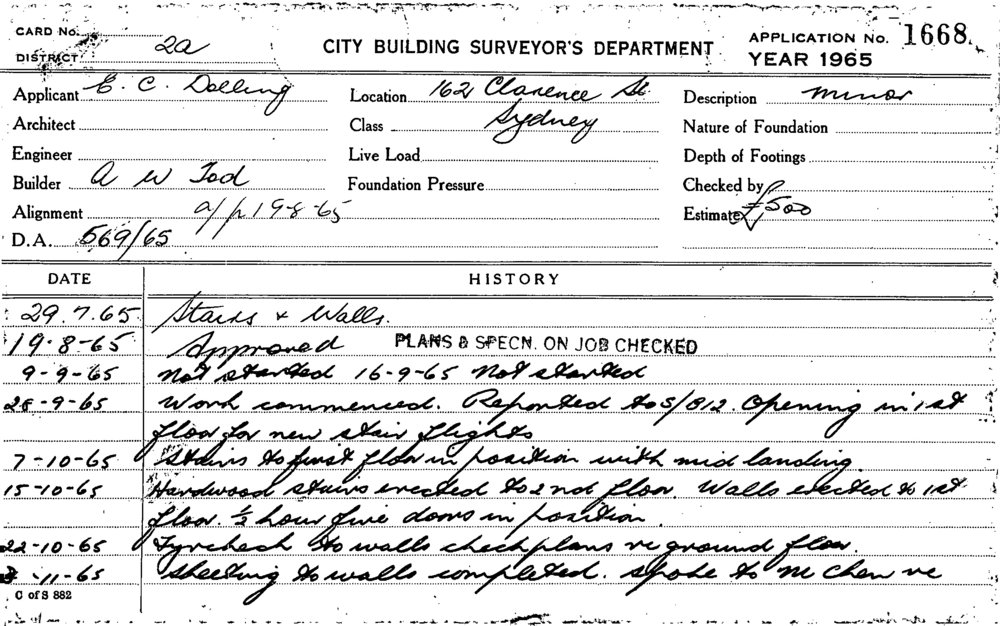 CARD No.
DISTRICT 2a
CITY BUILDING SURVEYOR'S DEPARTMENT
APPLICATION No. 1668
YEAR 1965
Applicant E. C. Dolling
Location 162 Clarence St
Description minor
Architect
Class Sydney
Nature of Foundation
Engineer
Live Load
Depth of Footings
Builder A W Tod
Foundation Pressure
Checked by
Alignment a/p 19-8-65
Estimate £500
D.A. 569/65
DATE HISTORY
29.7.65 Stairs & Walls.
19-8-65 Approved PLANS & SPECN. ON JOB CHECKED
9-9-65 not started 16-9-65 not started
28-9-65 Work commenced. Reported to S/812. Opening in 1st
floor for new stair flights
7-10-65 Stairs to first floor in position with mid landing.
15-10-65 Hardwood stairs erected to 2nd floor. Walls erected to 1st
floor. ½ hour fire doors in position.
22-10-65 Fyrchech to walls check plans re ground floor.
-11-65 Sheeting to walls completed. spoke to M Chen re
C of S 882